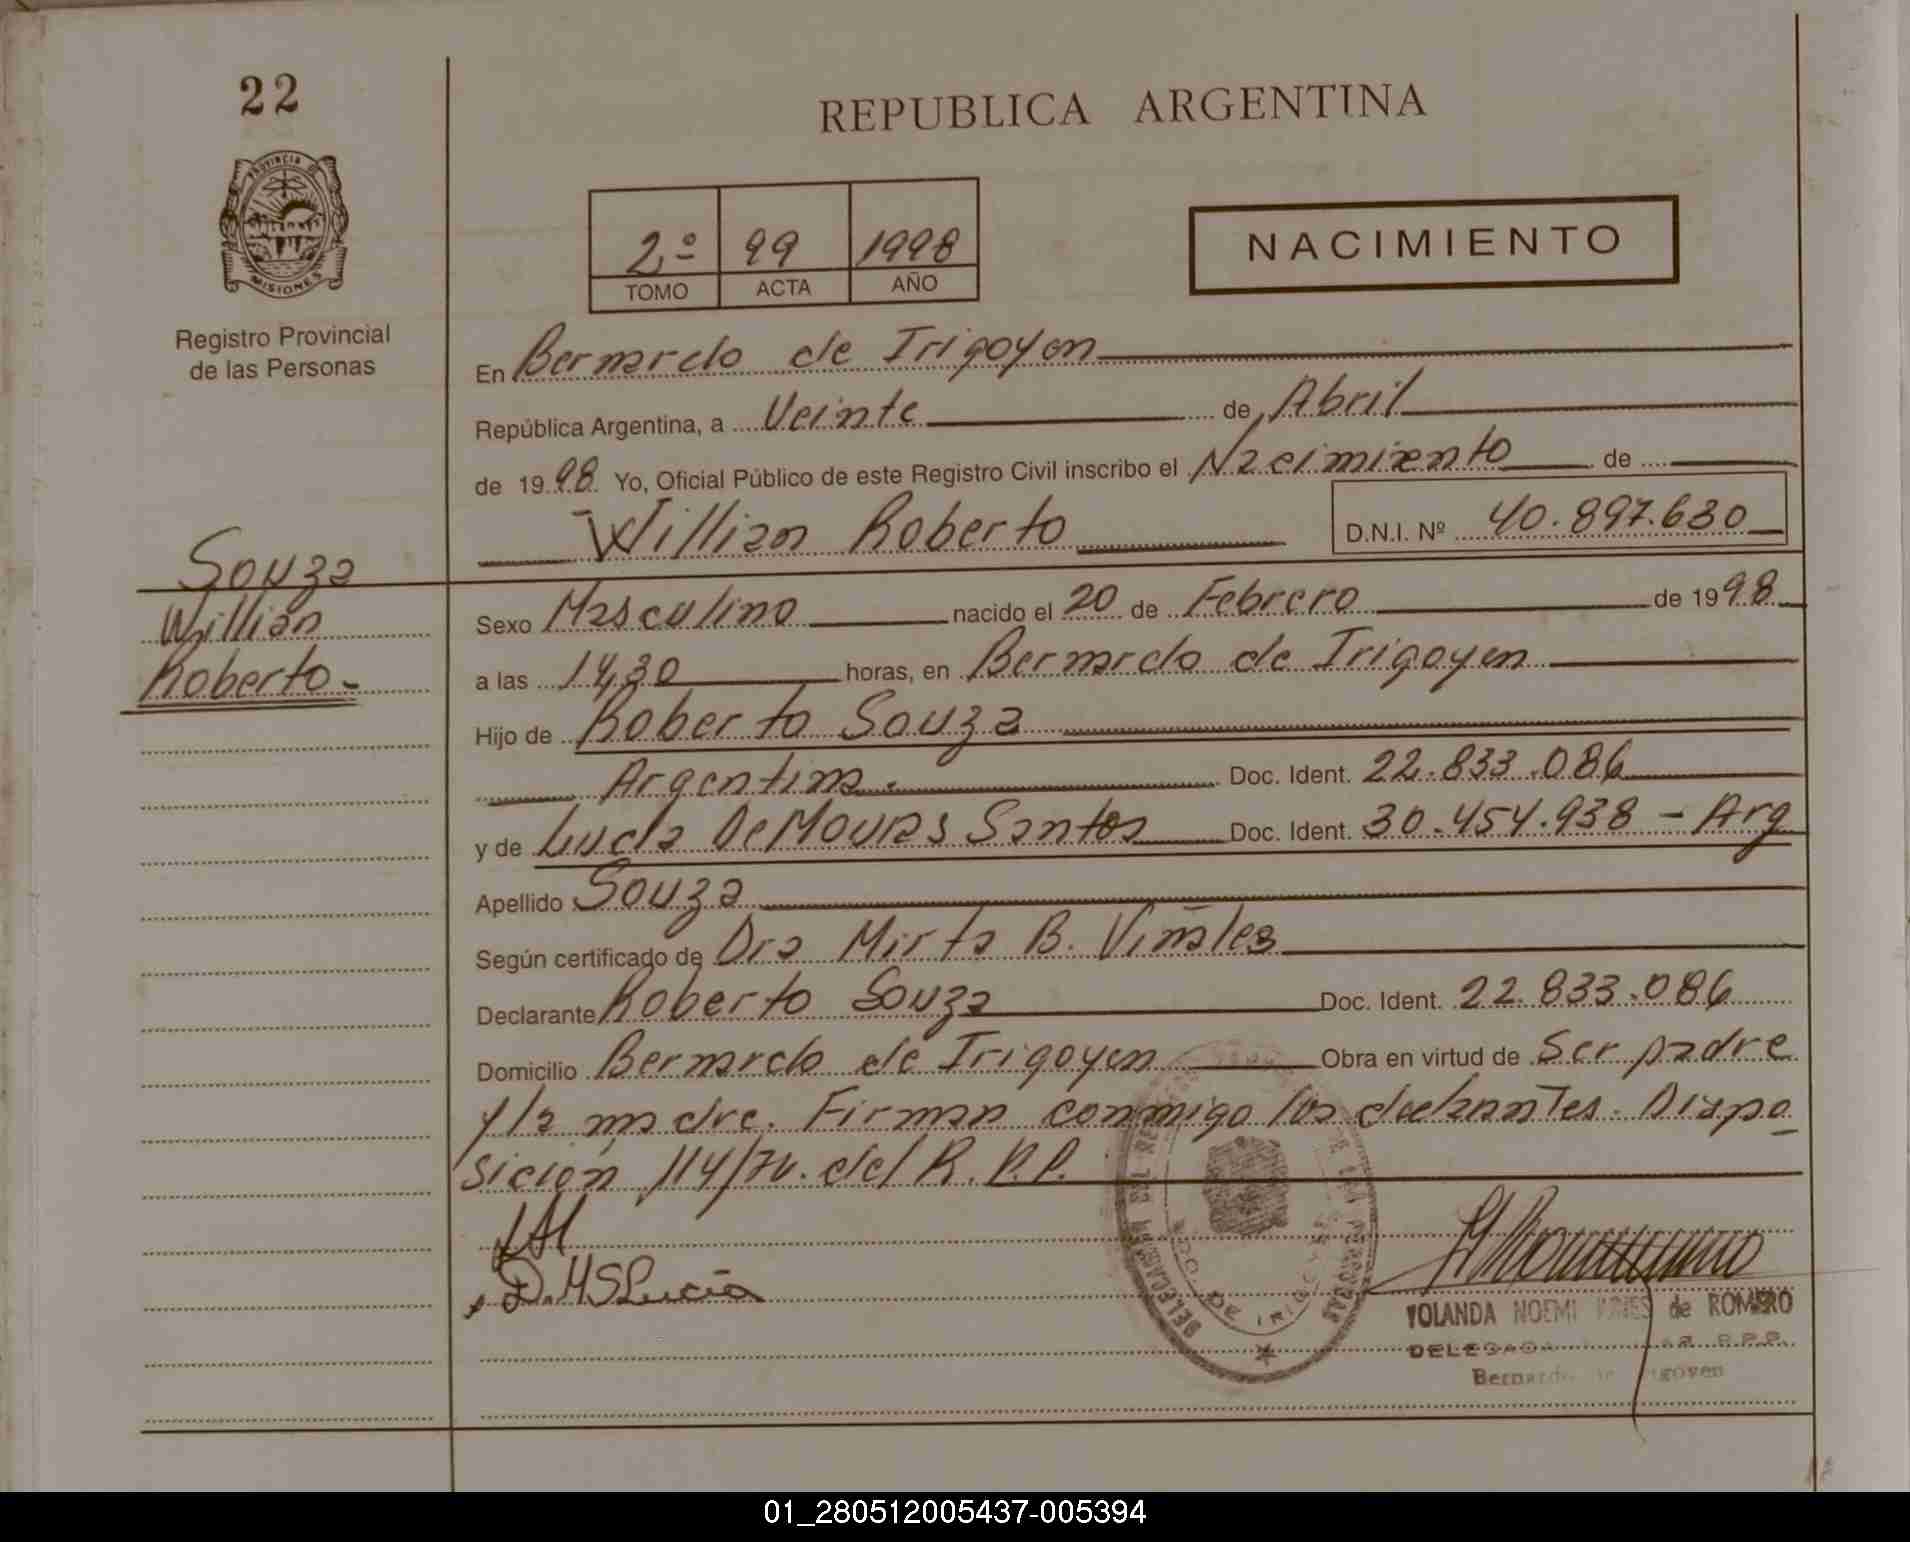 22
REPUBLICA ARGENTINA
PROVINCIA DE
MISIONES
Registro Provincial
de las Personas
2º 99 1998
TOMO ACTA AÑO
NACIMIENTO
En Bernardo de Irigoyen
República Argentina, a Veinte de Abril
de 1998 Yo, Oficial Público de este Registro Civil inscribo el Nacimiento de
Willian Roberto D.N.I. Nº 40.897.630
Souza
Willian
Roberto-
Sexo Masculino nacido el 20 de Febrero de 1998
a las 14,30 horas, en Bernardo de Irigoyen
Hijo de Roberto Souza
Argentina. Doc. Ident. 22.833.086
y de Lucia De Mouras Santos Doc. Ident. 30.454.938 - Arg
Apellido Souza
Según certificado de Dra Mirta B. Viñales
Declarante Roberto Souza Doc. Ident. 22.833.086
Domicilio Bernardo de Irigoyen Obra en virtud de Ser padre
y la madre. Firman conmigo los Dispo
sición 114/ del R.P.P.
D.MSLucia
DELEGACION DEL
DE IRIGOYEN
YOLANDA NOEMI de ROMERO
DELEGADA R.P.P.
Bernardo de Irigoyen
01_280512005437-005394